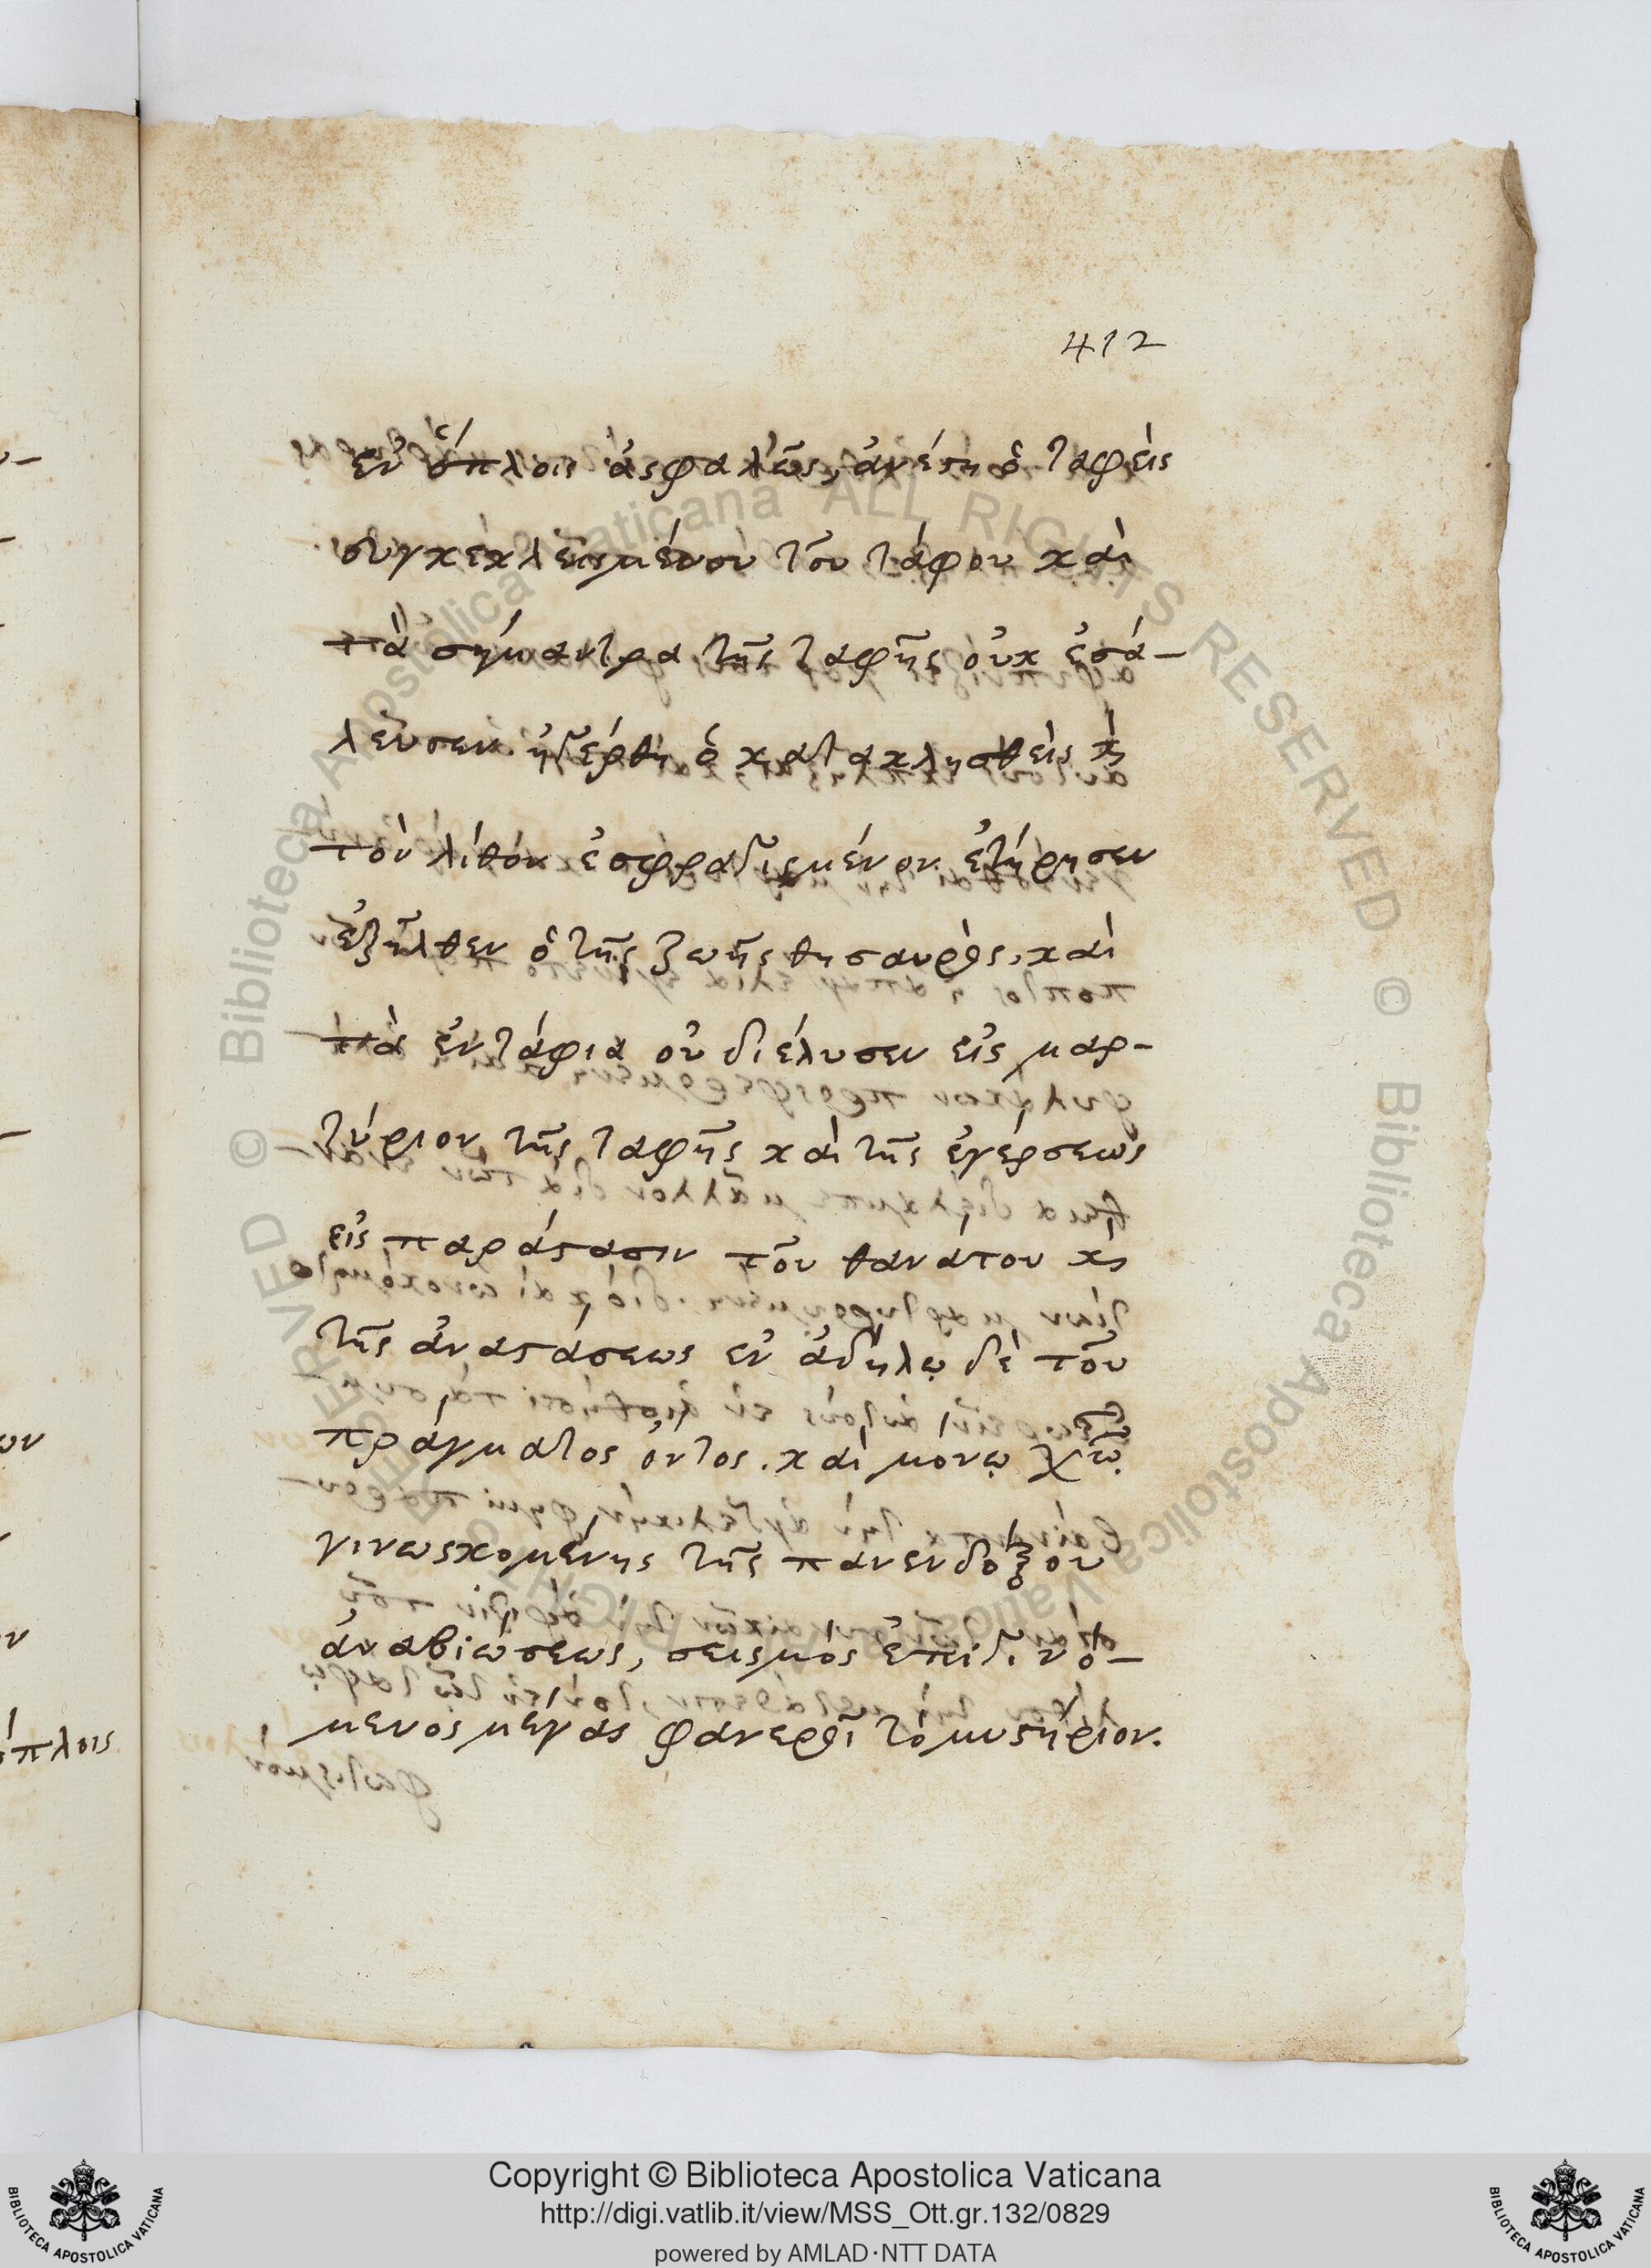 412
ἐν ὅπλοις ἀσφαλῶς, ἀνέστη ὁ ταφεὶς
συγκεκλεισμένου τοῦ τάφου καὶ
τὰ σήμαντρα τῆς ταφῆς οὐκ ἐσά-
λευσεν. ἠγέρθη ὁ κατακλησθεὶς κὶ
τὸν λίθον ἐσφραγισμένον ἐτήρησεν
ἐξῆλθεν ὁ τῆς ζωῆς θησαυρὸς, καὶ
τὰ ἐντάφια οὐ διέλυσεν εἰς μαρ-
τύριον τῆς ταφῆς καὶ τῆς ἐγέρσεως
εἰς παράστασιν τοῦ θανάτου κὶ
τῆς ἀναστάσεως ἐν ἀδήλῳ δὲ τοῦ
πράγματος ὄντος. καὶ μόνῳ χῶ
γινωσκομένης τῆς πανενδόξου
ἀναβιώσεως, σεισμὸς ἐπιγινό-
μενος μέγας φανεροῖ τὸ μυστήριον.
όπλοις
Copyright © Biblioteca Apostolica Vaticana
http://digi.vatlib.it/view/MSS_Ott.gr.132/0829
powered by AMLAD·NTT DATA
BIBLIOTECA APOSTOLICA VATICANA
BIBLIOTECA APOSTOLICA VATICANA